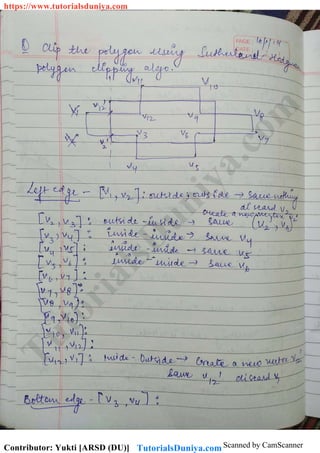 https://www.tutorialsduniya.com
PAGE
DATE
Q Clip the polygon using Sutherland-Hodgman
polygon clipping algo.
V11 V10
V12' V12 V9 V8
V1
V2 V2' V3 V6 V7
V4 V5
Left edge - [V1, V2]: outside-outside → save nothing
discard V2
create a new vertex V2'
[V2, V3]: outside-inside → save (V2', V3)
[V3, V4]: inside-inside → save V4
[V4, V5]: inside-inside → save V5
[V5, V6]: inside-inside → save V6
[V6, V7]:
[V7, V8]:
[V8, V9]:
[V9, V10]:
[V10, V11]:
[V11, V12]:
[V12, V1]: inside-outside → create a new vertex V12'
save V12' discard V1
Bottom edge - [V3, V4]:
TutorialsDuniya.com
Contributor: Yukti [ARSD (DU)] TutorialsDuniya.com Scanned by CamScanner